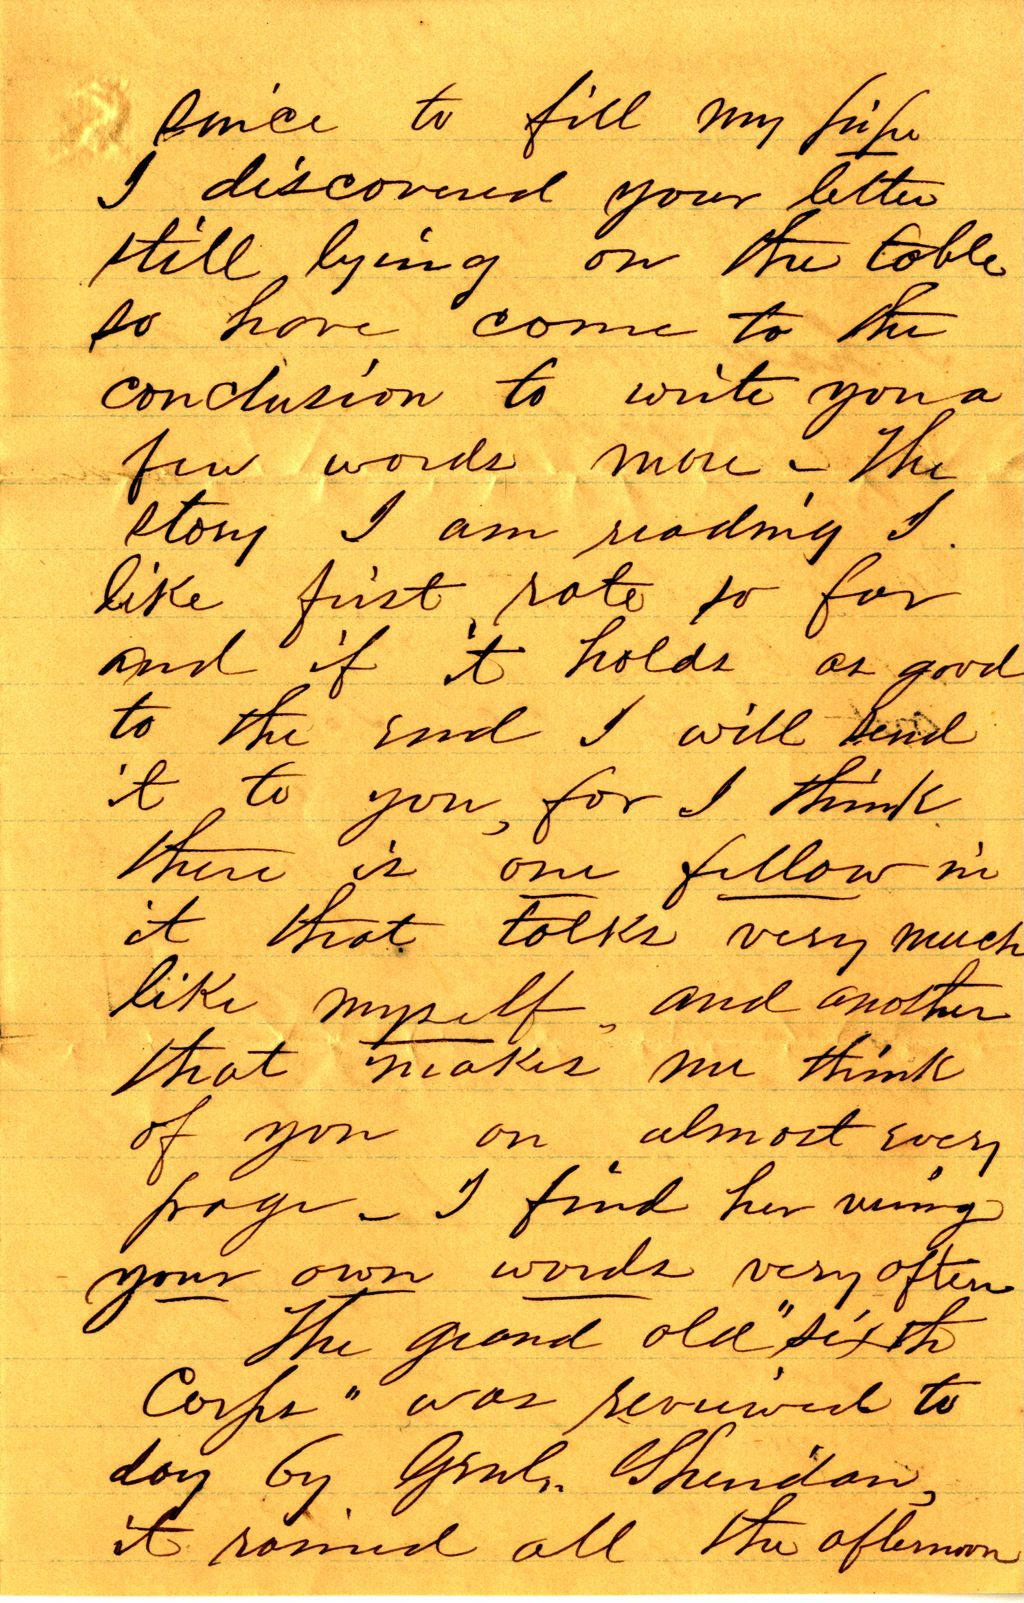 since to fill my pipe
I discovered your letter
still lying on the table
so have come to the
conclusion to write you a
few words more - The
story I am reading I
like first rate so far
and if it holds as good
to the end I will send
it to you, for I think
there is one fellow in
it that talks very much
like myself, and another
that makes me think
of you on almost every
page - I find her using
your own words very often
The grand old "sixth
Corps" was reviewed to
day by Genl. Sheridan,
it rained all the afternoon